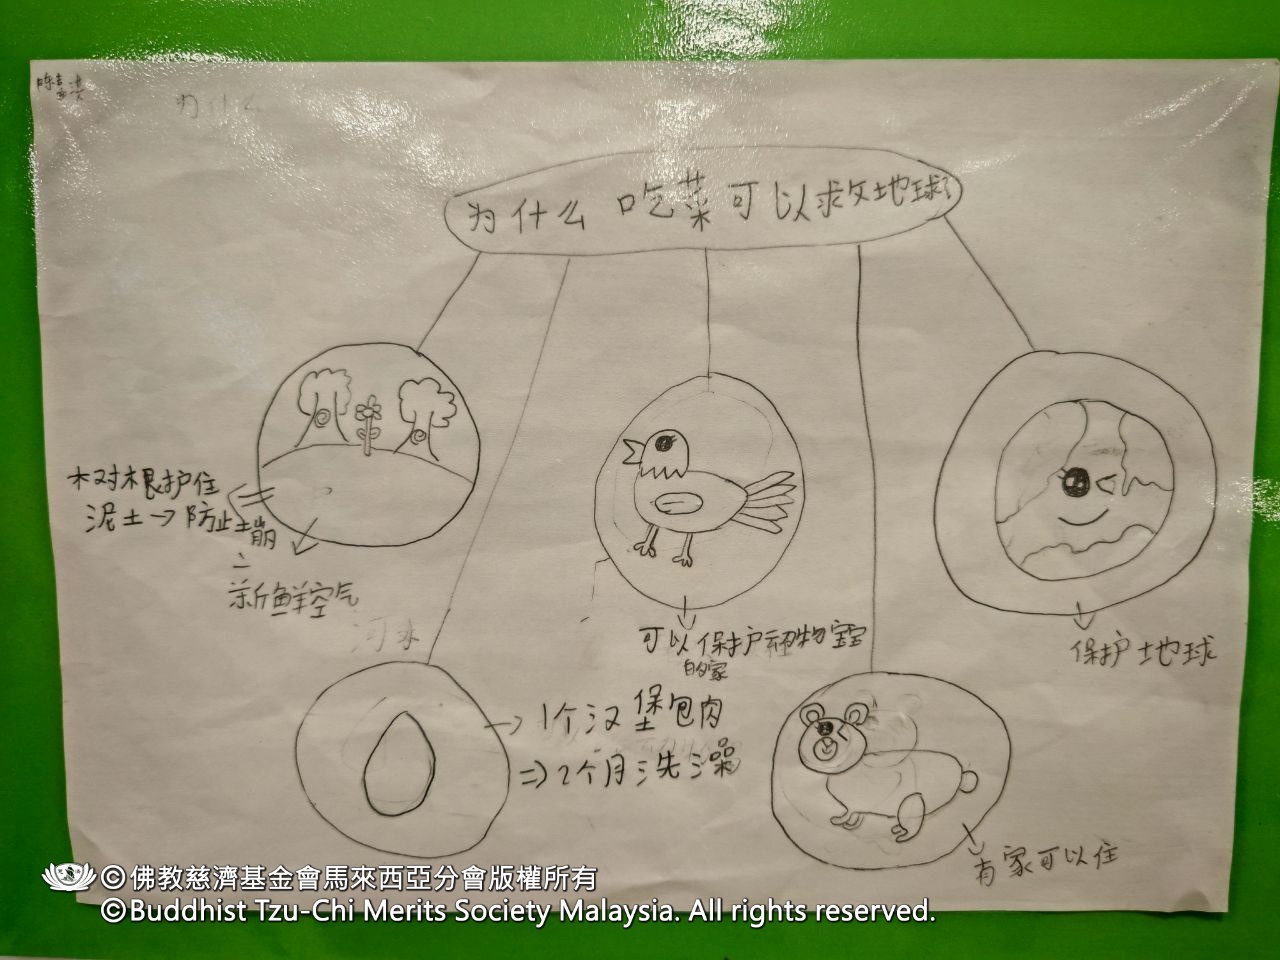 为什么
为什么 吃菜可以救地球?
树根护住
泥土→防止土崩
新鲜空气
河水
可以保护动物宝宝
的家
保护地球
→1个汉堡包肉
⇒2个月洗澡
有家可以住
©佛教慈濟基金會馬來西亞分會版權所有
©Buddhist Tzu-Chi Merits Society Malaysia. All rights reserved.